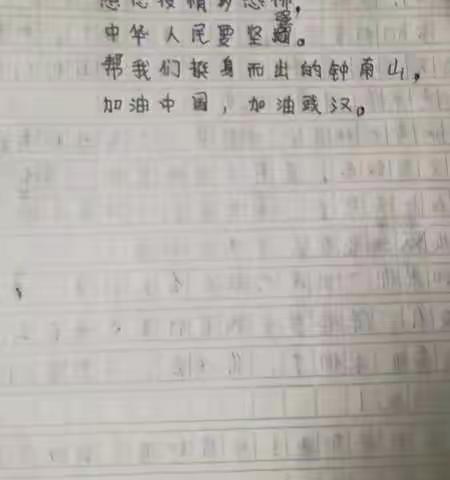 疫情多恐怖，
中华人民要坚强。
帮我们挺身而出的钟南山，
加油中国，加油武汉。